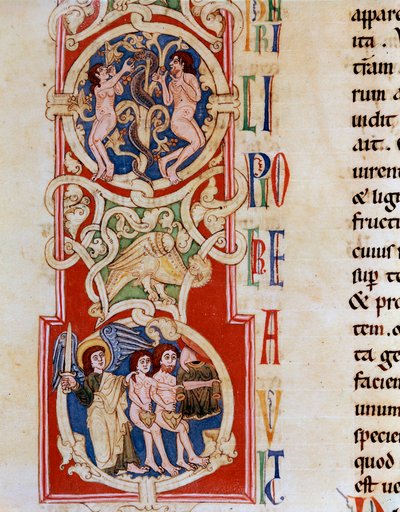 RI
CI
PIO
CRE
A
V
IT
appare
ita .
tram
rum
uidit
ait .
uirent
& lig
fructi
cuius
sup te
& pro
tem .
ta ge
facien
unum
specie
quod
est ue